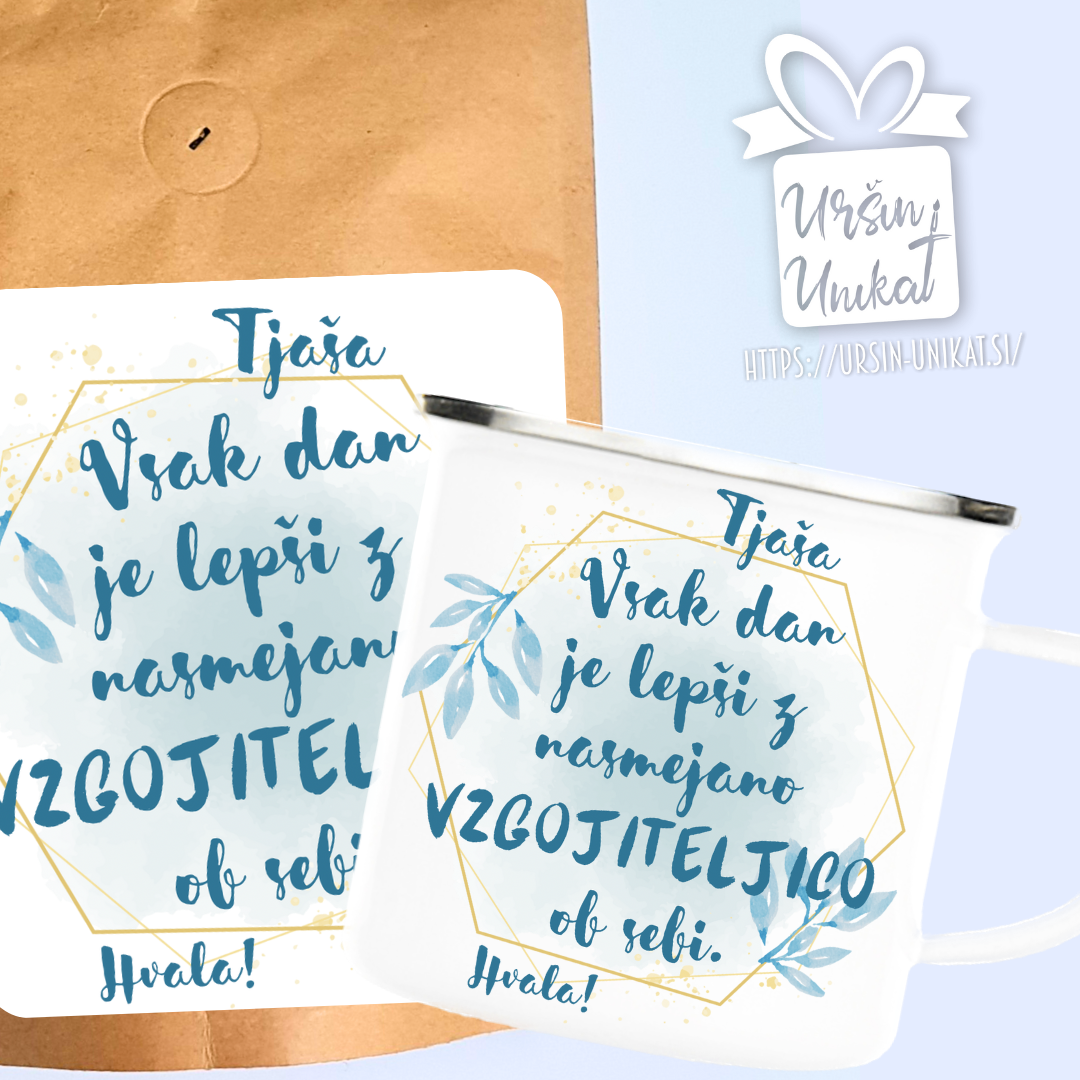 Uršin
Unikat
HTTPS://URSIN-UNIKAT.SI/
Tjaša
Vsak dan
je lepši z
nasmejano
VZGOJITEL
ob sebi
Hvala!
Tjaša
Vsak dan
je lepši z
nasmejano
VZGOJITELJICO
ob sebi.
Hvala!